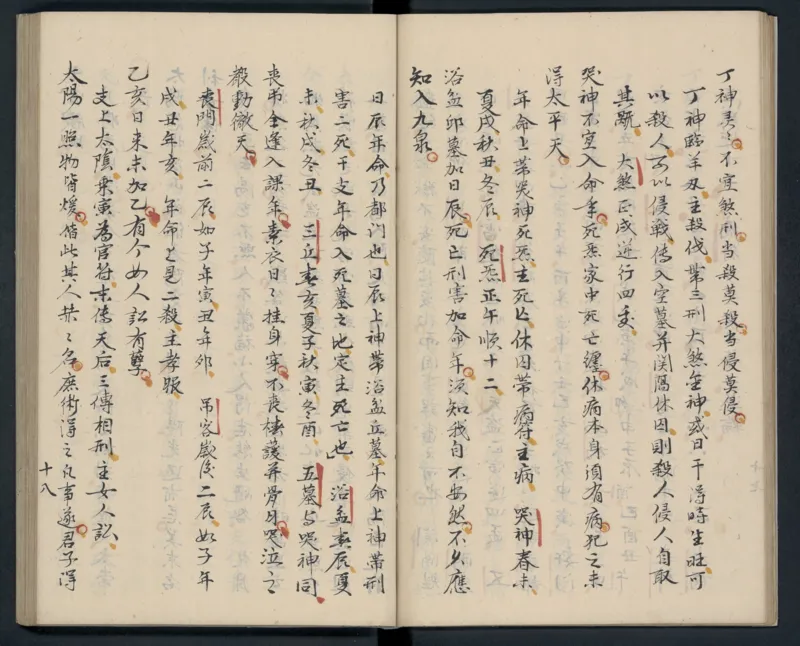 丁神灵之不宜煞刑当殺莫殺当侵莫侵
丁神臨羊刃主殺伐帶三刑大煞坐神或日干得時生旺可
以殺人可以侵戰傳入空墓并関隔休囚則殺人侵人自取
其斃 大煞正戌逆行四季
哭神不宜入命年死炁家中死亡纏休病本身須有病死之未
得太平天
年命上帶哭神死炁主死亡休囚帶病符主病 哭神春未
夏戌秋丑冬辰 死炁正午順十二
浴盆卯墓加日辰死亡刑害加命年須知我自不安然不久應
知入九泉
日辰年命乃都门也日辰上神帶浴盆丘墓年命上神帶刑
害二死干支年命入死墓之地定主死亡也 浴盆春辰夏
未秋戌冬丑 三丘春丑夏辰秋未冬戌 五墓与哭神同
喪弔全逢入課年素衣日々挂身穿不喪棲護并骨月哭泣之
聲動徹天
喪門歲前二辰如子年寅丑年卯 吊客歲後二辰如子年
戌丑年亥 年命上是二殺主孝服
乙亥日来未加乙有个女人訟有孽
支上太陰乘寅為官符末傳天后三傳相刑主女人訟
太陽一照物皆煖偕此其人共々名庶術得之凡事遂君子得
十八